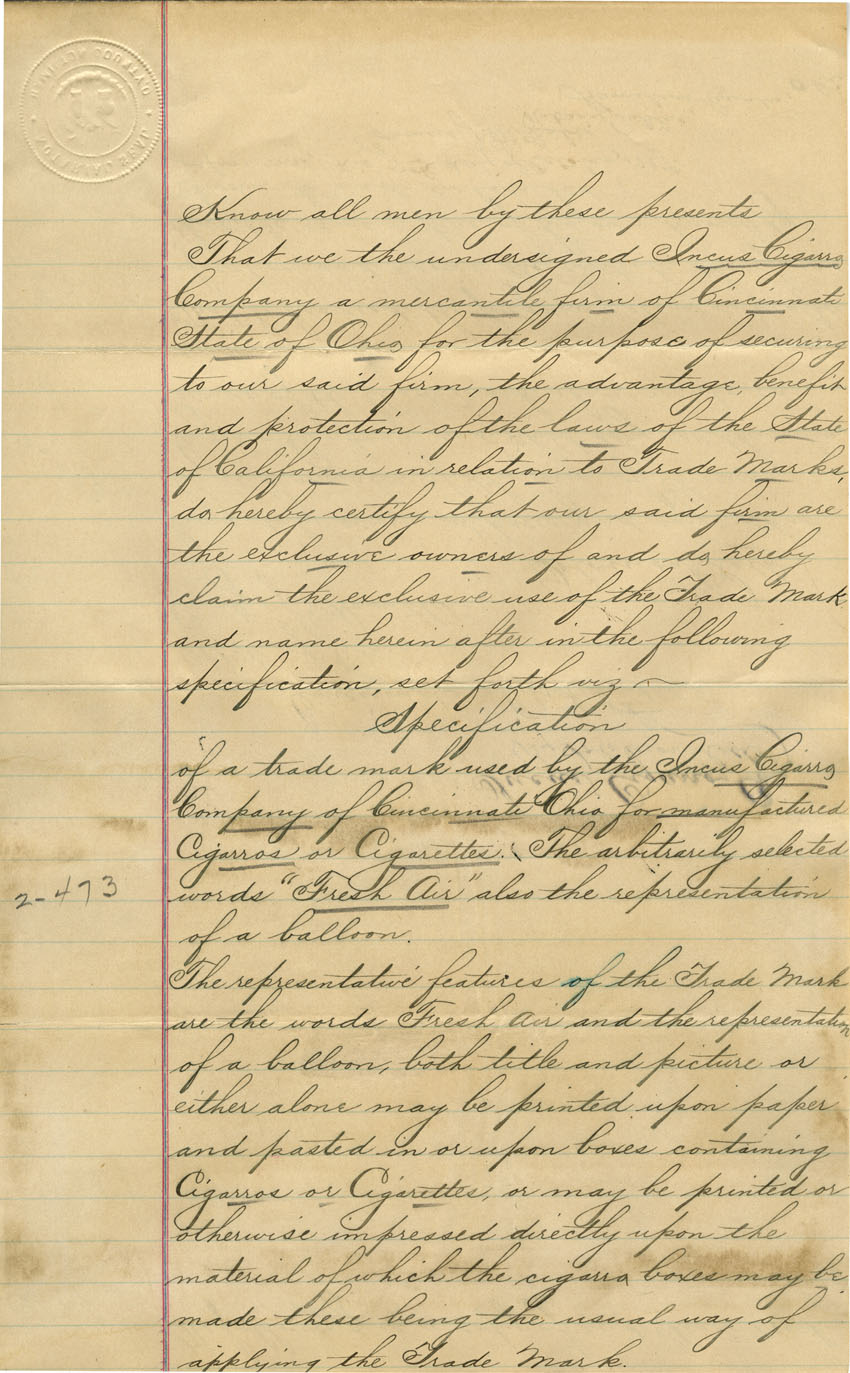 Know all men by these presents
That we the undersigned Incus Cigarro
Company a mercantile firm of Cincinnati
State of Ohio for the purpose of securing
to our said firm, the advantage, benefit
and protection of the laws of the State
of California in relation to Trade Marks,
do hereby certify that our said firm are
the exclusive owners of and do hereby
claim the exclusive use of the Trade Mark
and name herein after in the following
specification, set forth viz
Specification
of a trade mark used by the Incus Cigarro
Company of Cincinnati Ohio for manufactured
Cigarros or Cigarettes. The arbitrarily selected
2-473
words "Fresh Air" also the representation
of a balloon.
The representative features of the Trade Mark
are the words Fresh Air and the representation
of a balloon, both title and picture or
either alone may be printed upon paper
and pasted in or upon boxes containing
Cigarros or Cigarettes, or may be printed or
otherwise impressed directly upon the
material of which the cigarro boxes may be
made these being the usual way of
applying the Trade Mark.